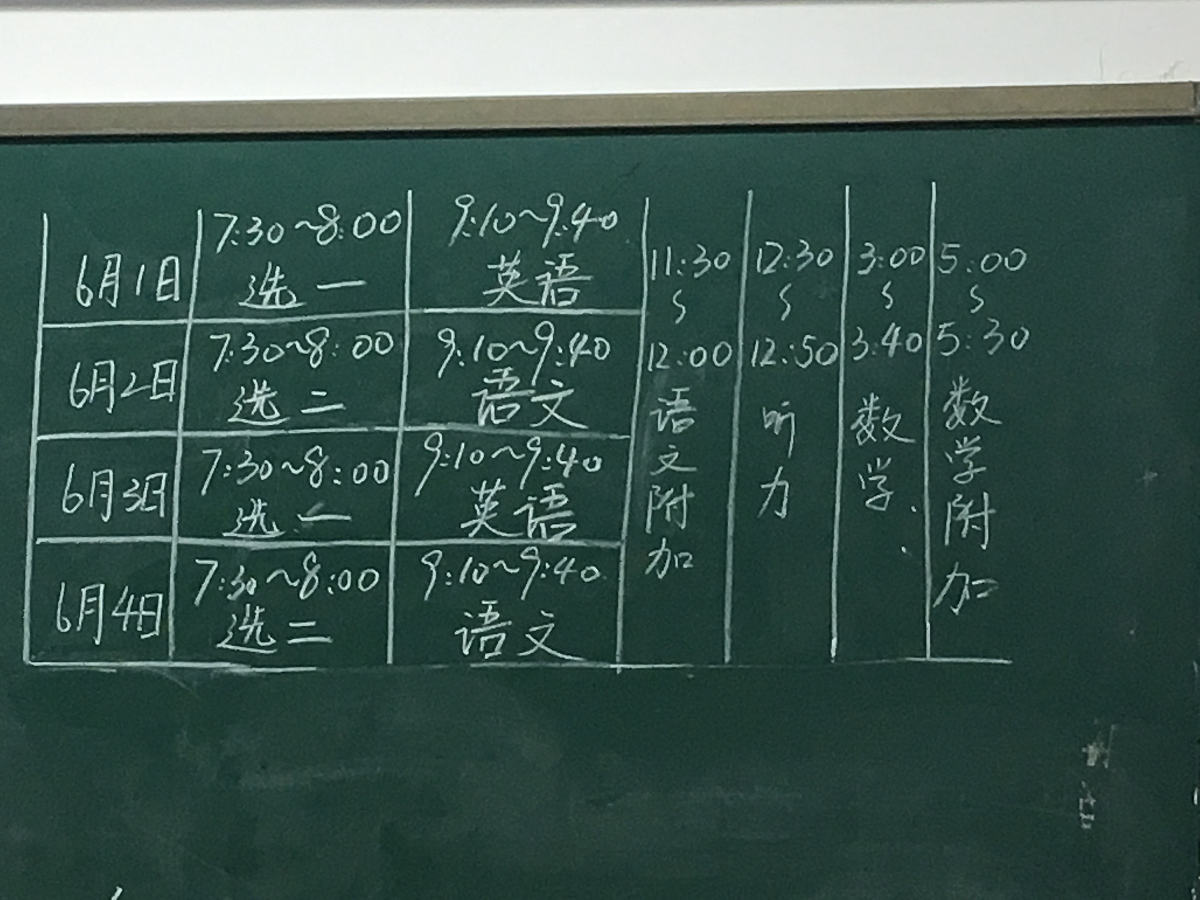 6月1日
7:30~8:00
选一
9:10~9:40
英语
6月2日
7:30~8:00
选二
9:10~9:40
语文
6月3日
7:30~8:00
选一
9:10~9:40
英语
6月4日
7:30~8:00
选二
9:10~9:40
语文
11:30
~
12:00
语文附加
12:30
~
12:50
听力
3:00
~
3:40
数学
5:00
~
5:30
数学附加